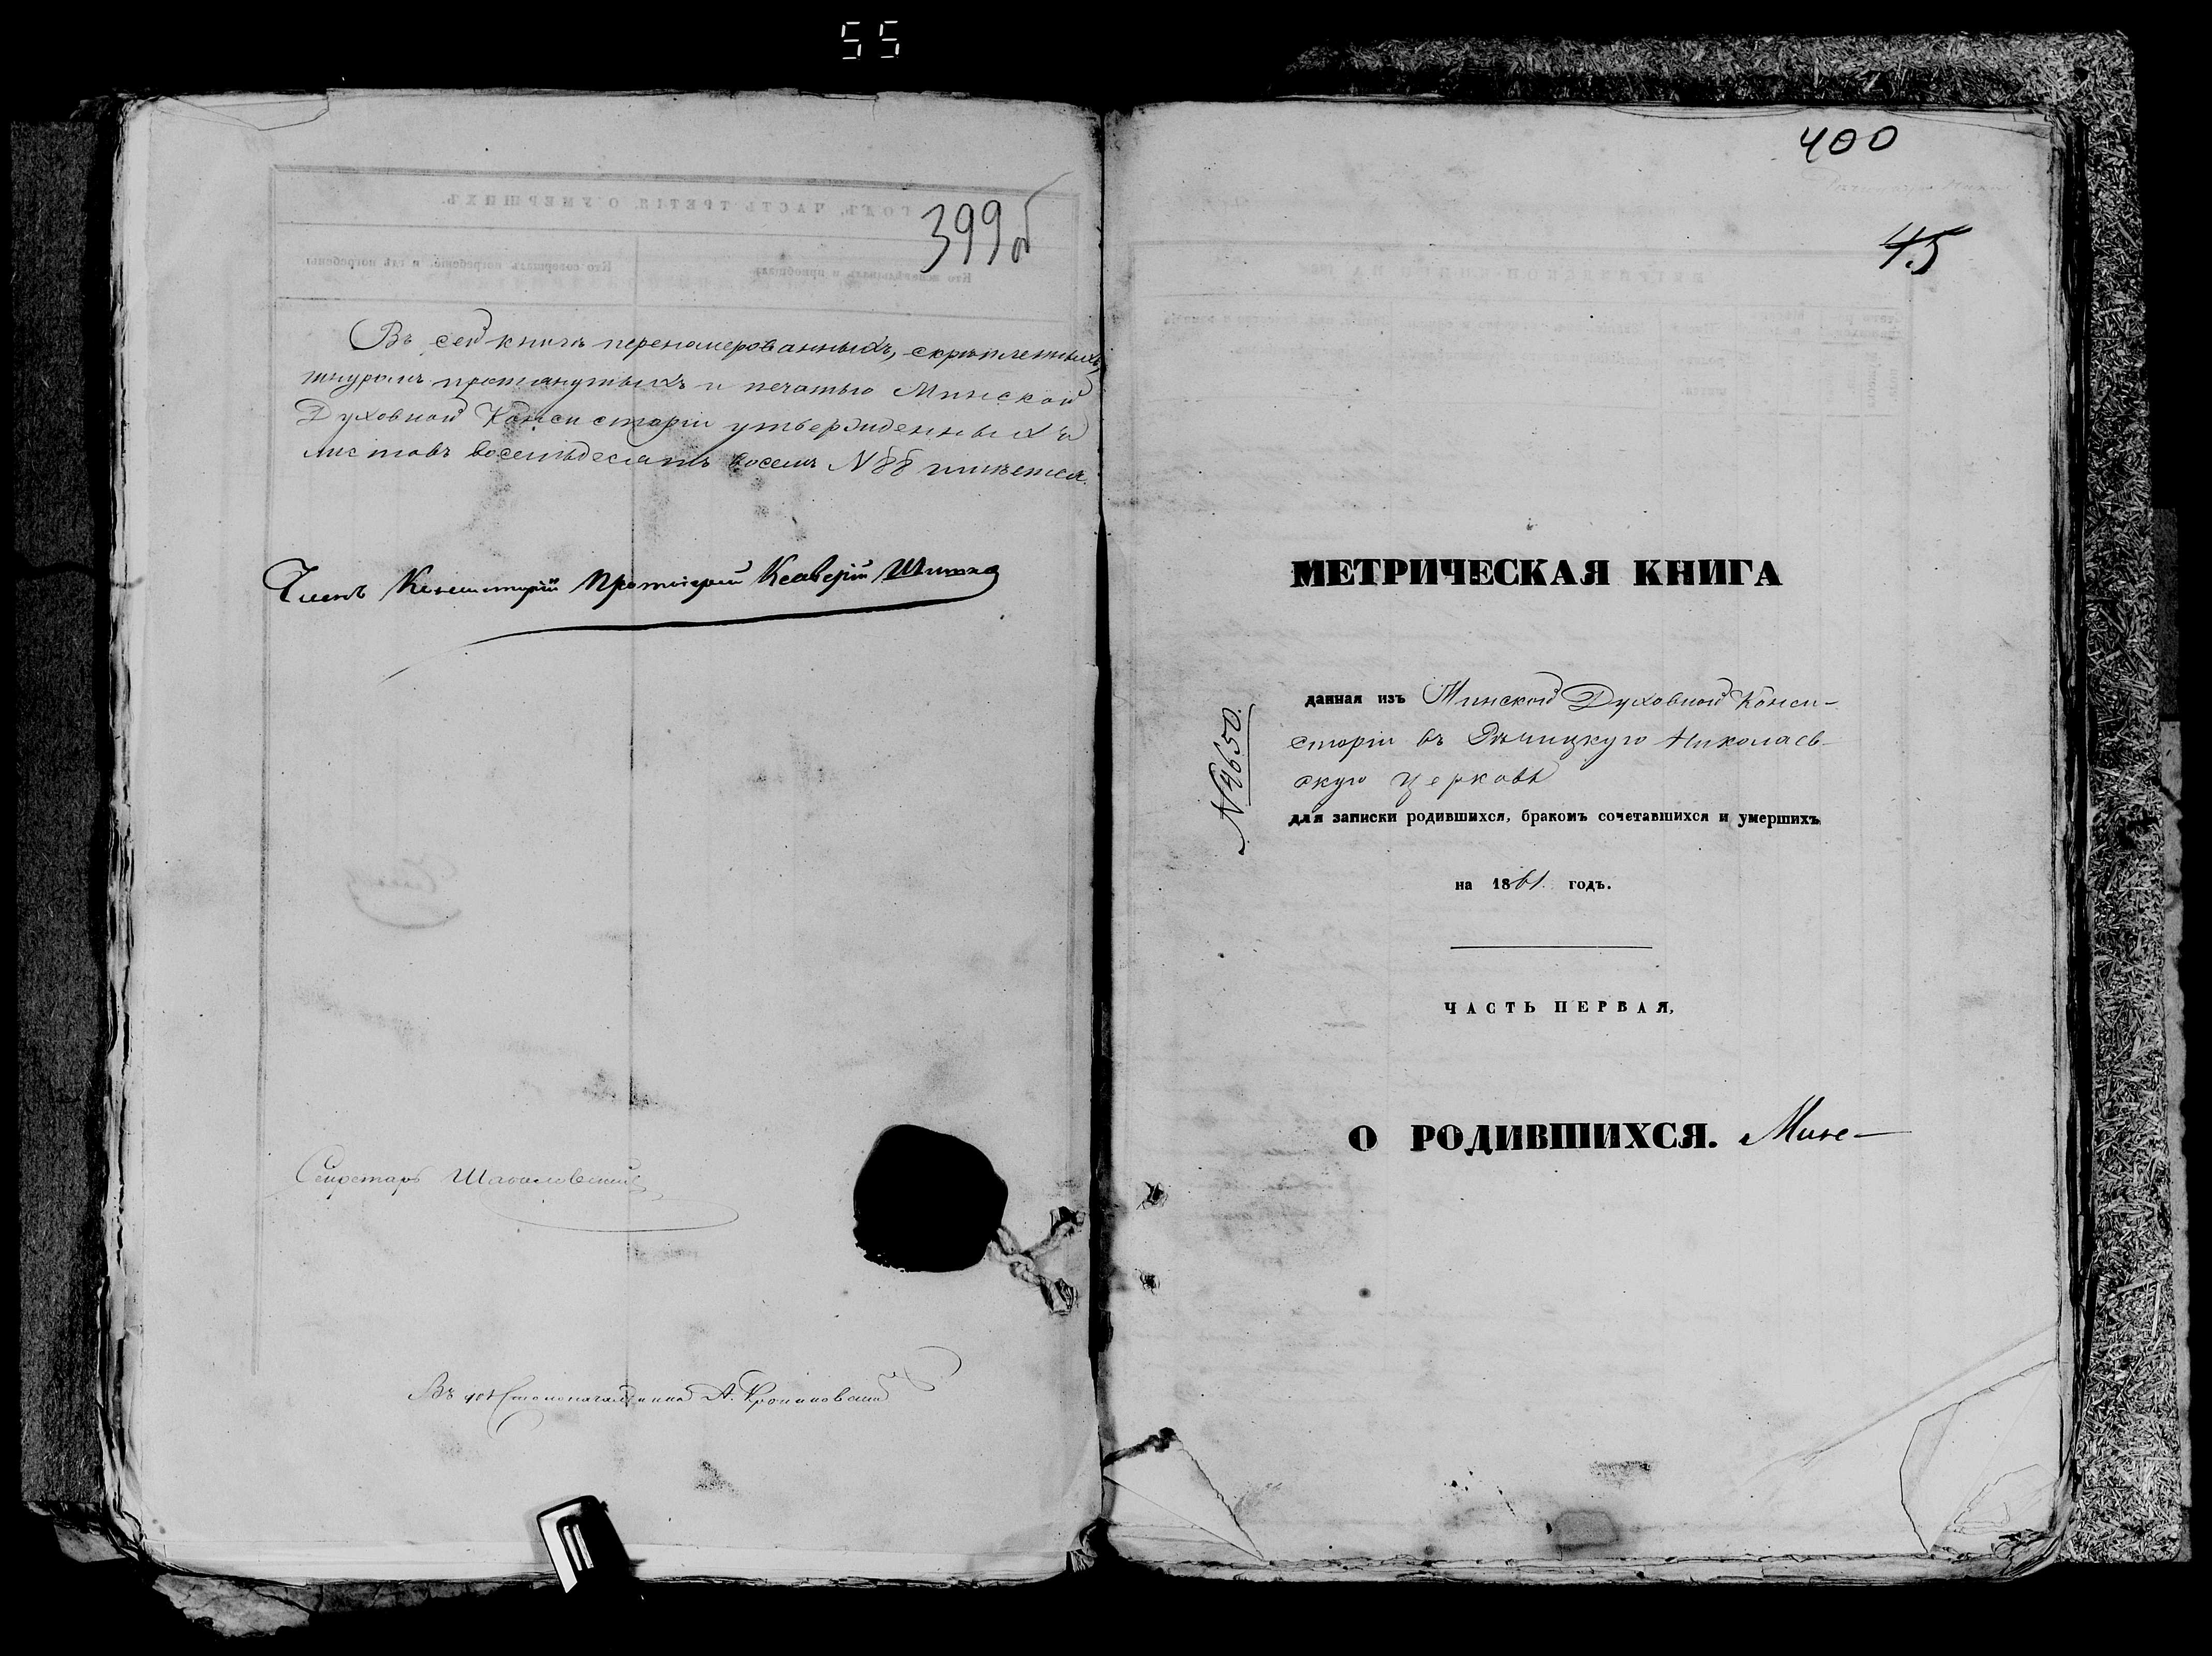 55
399об
Въ сей книгѣ перенамерованныхъ, скрѣпленныхъ,
шнуромъ протянутыхъ и печатью Минской
Духовной Консисторіи утвержденныхъ
листовъ восемьдесятъ восемь N 88 имѣется.
Членъ Консисторіи Протоіерей Ксаверій
Секретарь
Въ Столоначальника А.
400
45
МЕТРИЧЕСКАЯ КНИГА
N 4650.
данная изъ Минской Духовной Конси-
сторіи въ Рѣчицкую Николаев-
скую церковь
для записки родившихся, бракомъ сочетавшихся и умершихъ
на 1861. годъ.
ЧАСТЬ ПЕРВАЯ,
О РОДИВШИХСЯ.